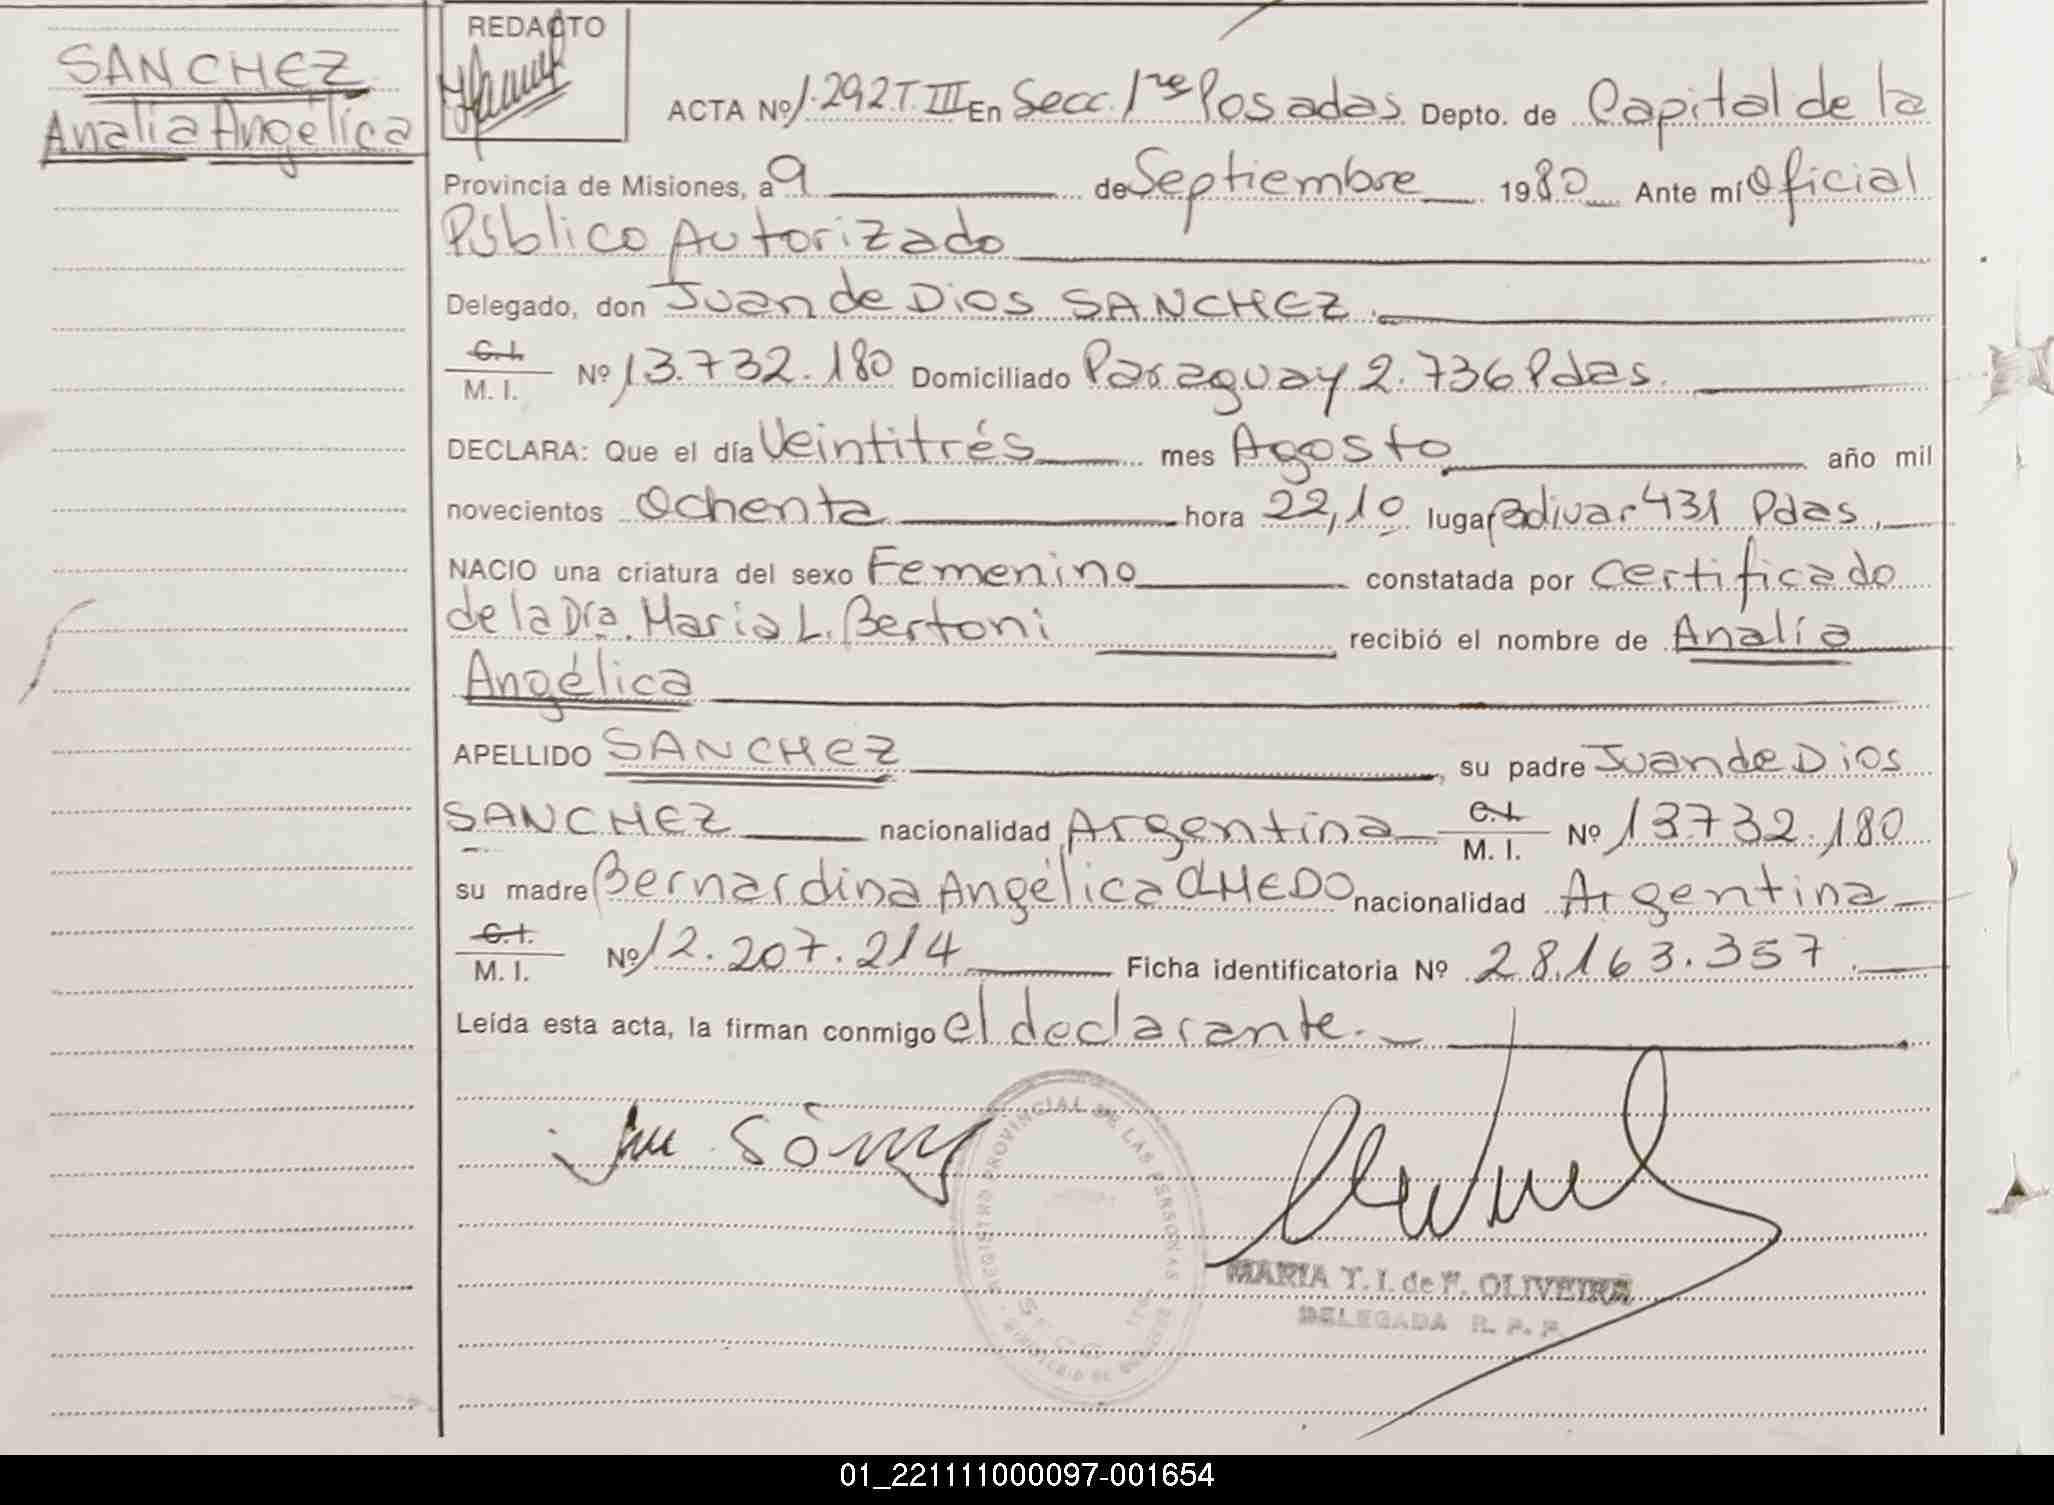 SANCHEZ
Analía Angélica
REDACTO
ACTA Nº 1.292 T. III En Secc. 1ra Posadas Depto. de Capital de la
Provincia de Misiones, a 9 de Septiembre 1980 Ante mí Oficial
Público Autorizado
Delegado, don Juan de Dios SANCHEZ.
C.I.
M. I. Nº 13.732.180 Domiciliado Paraguay 2.736 Pdas.
DECLARA: Que el día Veintitrés mes Agosto año mil
novecientos Ochenta hora 22,10 lugar 431 Pdas,
NACIO una criatura del sexo Femenino constatada por Certificado
de la Dra. Maria L. Bertoni recibió el nombre de Analía
Angélica
APELLIDO SANCHEZ, su padre Juan de Dios
SANCHEZ nacionalidad Argentina C.I.
M. I. Nº 13.732.180
su madre Bernardina Angélica OLMEDO nacionalidad Argentina
C.I.
M. I. Nº 12.207.214 Ficha identificatoria Nº 28.163.357.
Leída esta acta, la firman conmigo el declarante.
REGISTRO PROVINCIAL DE LAS PERSONAS
MARIA T. I. de F. OLIVEIRA
DELEGADA R. P. P.
01_221111000097-001654